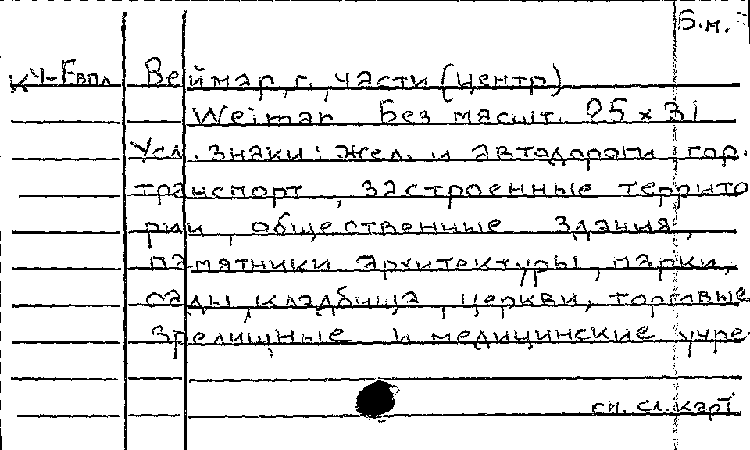 Б.м.
Веймар, г., части (центр)
Weimar Без масшт. 25 x 31
Усл. знаки: жел. и автодороги, гор.
транспорт, застроенные террито
рии, общественные здания,
памятники архитектуры, парки,
сады, кладбища, церкви, торговые
зрелищные и медицинские учре
см. сл. карт